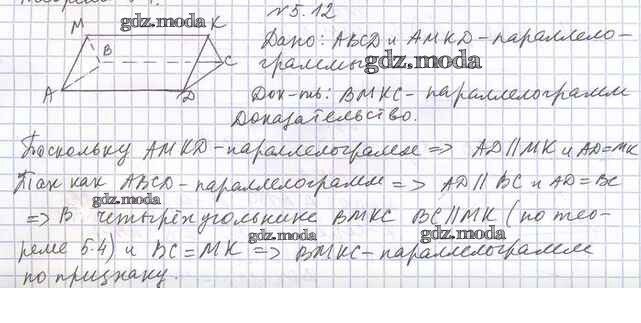 №5.12
M gdz.moda K
Дано: ABCD и AMKD-параллело-
B
граммы gdz.moda
C
A
D
Док-ть: BMKC- параллелограмм
Доказательство.
Поскольку AMKD-параллелограмм => AD||MK и AD=MK
Так как ABCD-параллелограмм => AD||BC и AD=BC
gdz.moda
=> В четырёхугольнике BMKC BC||MK (по тео-
gdz.moda gdz.moda
реме 5.4) и BC=MK => BMKC-параллелограмм
по признаку.